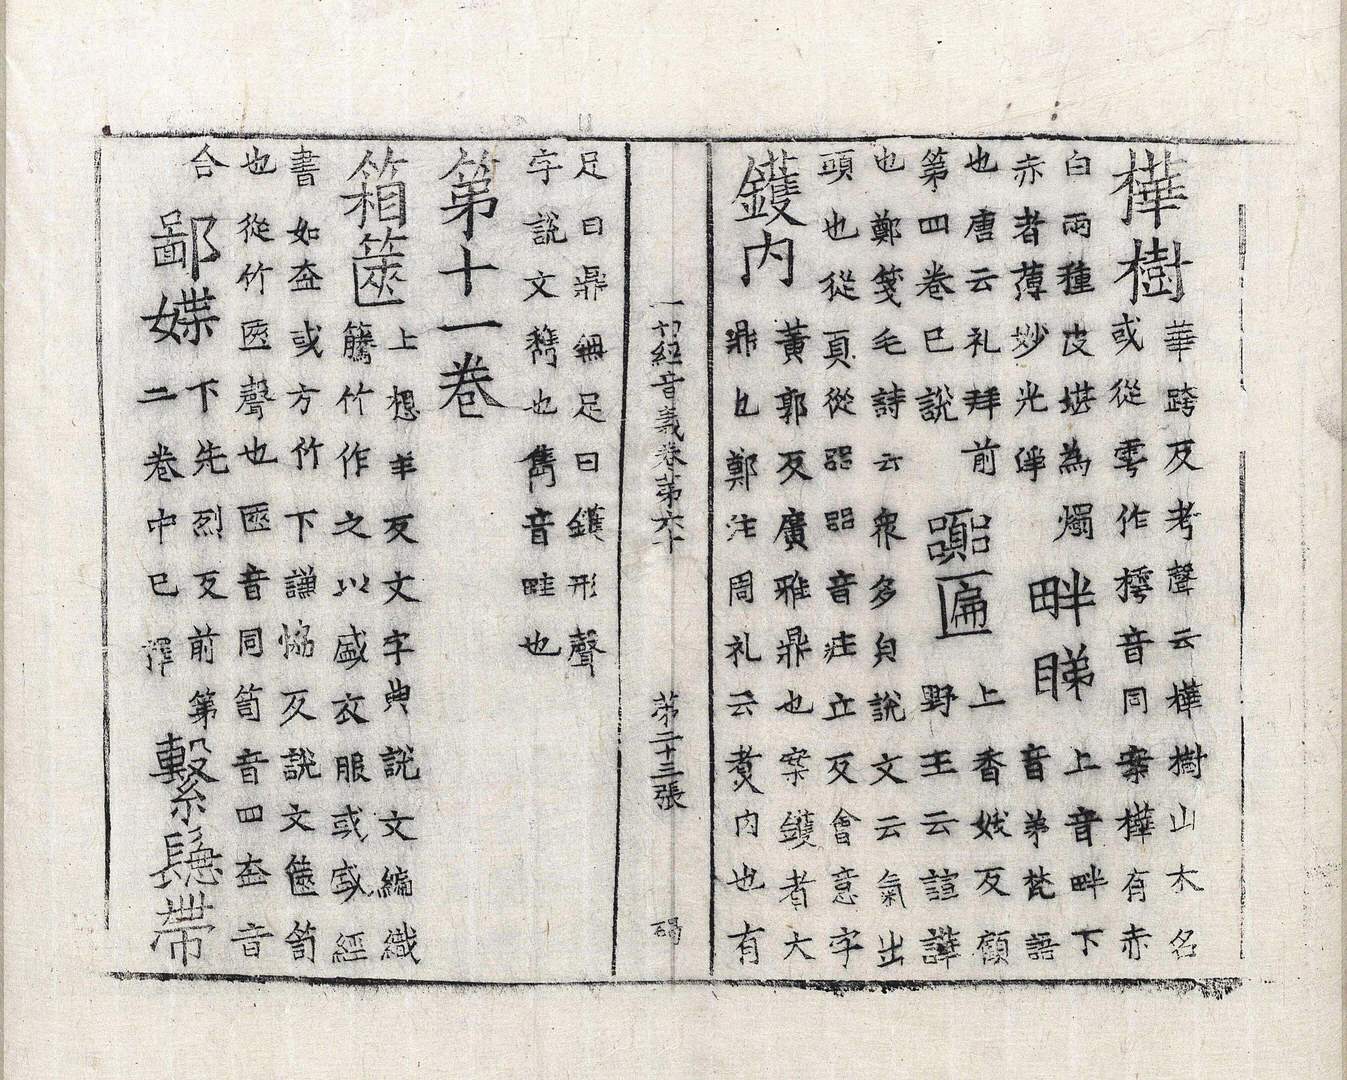 樺樹
華跨反考聲云樺樹山木名
或從雩作㯉音同案樺有赤
白兩種皮堪為燭
赤者薄妙光淨
畔睇
上音畔下
音弟梵語
也唐云礼拜前
第四卷已說
嚻匾
上香妓反顧
野王云諠譁
也鄭箋毛詩云衆多皃說文云氣出
頭也從頁從㗊㗊音莊立反會意字
鑊内
黃郭反廣雅鼎也案鑊者大
鼎也鄭注周礼云煮肉也有
一切經音義卷第六十 第二十三張 碣
足曰鼎無足曰鑊形聲
字說文鑴也鑴音畦也
第十一卷
箱篋
上想羊反文字典說文編織
䉤竹作之以盛衣服或盛經
書如奁或方竹下謙恊反說文篋笥
也從竹匧聲也匧音同笥音四奁音
合
鄙媟
下先烈反前第
二卷中已釋
繫鬘帶